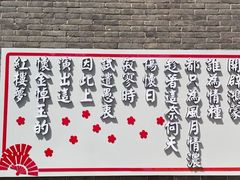 開闢鴻蒙
誰為情種
都只為風月情濃
趁着這奈何天
傷懷日
寂寥時
試遣愚衷
因此上
演出這
懷金悼玉的
紅樓夢